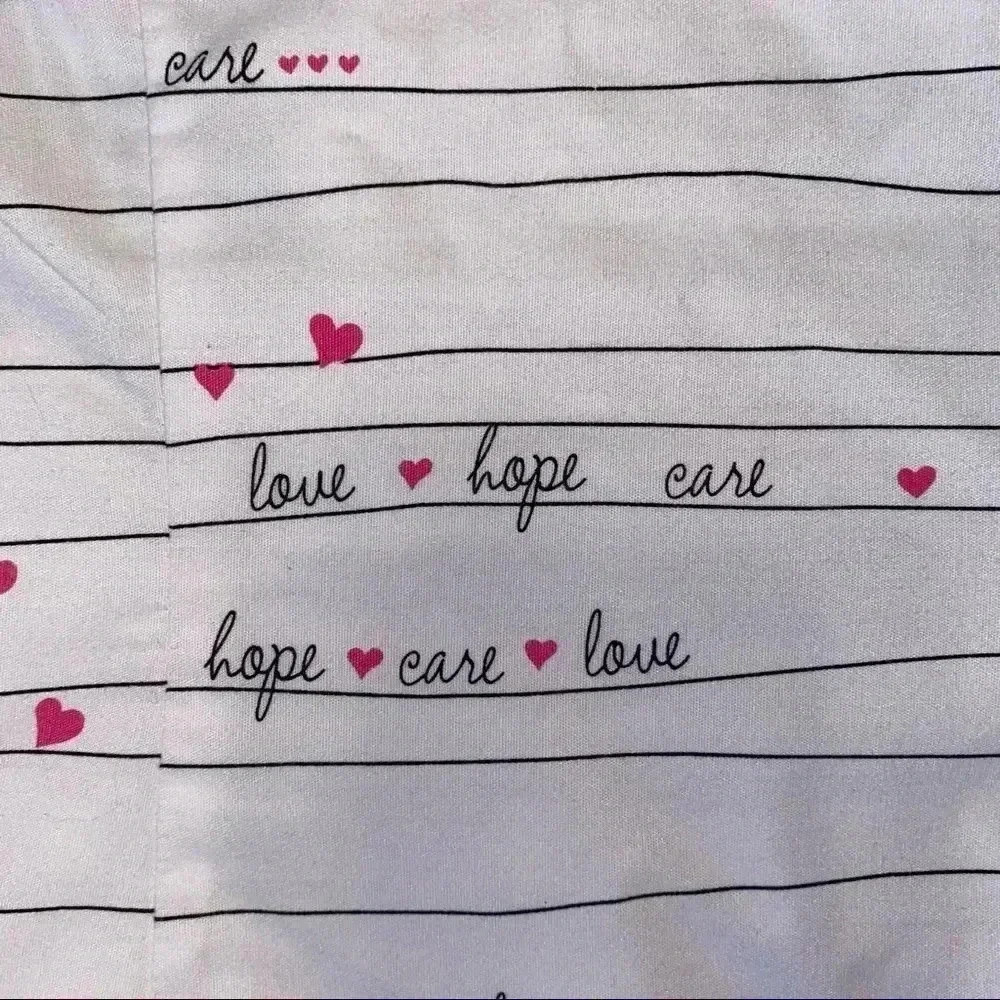 care
love hope care
hope care love